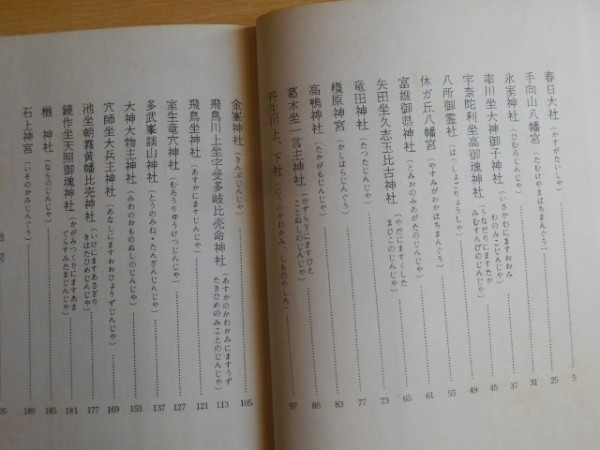 春日大社（かすがたいしゃ） 5
手向山八幡宮（たむけやまはちまんぐう） 25
氷室神社（ひむろじんじゃ） 31
率川坐大神御子神社（いさかわにますおおみわのみこじんじゃ） 37
宇奈陀利坐高御魂神社（うなだりにますたかみむすびのじんじゃ） 45
八所御霊社（はっしょごりょうしゃ） 49
休ガ丘八幡宮（やすみがおかはちまんぐう） 55
富雄御県神社（とみおのみあがたのじんじゃ） 61
矢田坐久志玉比古神社（やだにますくしたまひこのじんじゃ） 65
竜田神社（たつたじんじゃ） 73
橿原神宮（かしはらじんぐう） 77
高鴨神社（たかがもじんじゃ） 83
葛木坐一言主神社（かずらぎにますひとことぬしのじんじゃ） 89
丹生川上、下社 97
金峯神社（きんぷじんじゃ） 105
飛鳥川上坐宇須多岐比売命神社（あすかのかわかみにますうずたきひめのみことのじんじゃ） 113
飛鳥坐神社（あすかにますじんじゃ） 121
室生竜穴神社（むろうりゅうけつじんじゃ） 127
多武峯談山神社（とうのみね・たんざんじんじゃ） 137
大神大物主神社（みわのおおものぬしのじんじゃ） 153
穴師坐大兵主神社（あなしにますおおひょうずじんじゃ） 169
池坐朝霧黄幡比売神社（いけにますあさぎりきはたひめじんじゃ） 177
鏡作坐天照御魂神社（かがみつくりにますあまてらすみたまじんじゃ） 181
楢　神社（ならのじんじゃ） 185
石上神宮（いそのかみじんぐう） 189